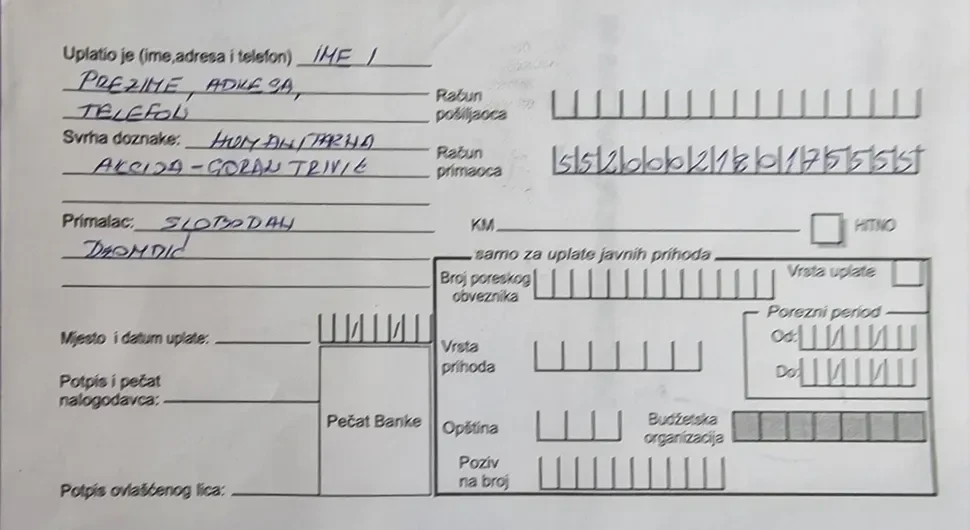 Uplatio je (ime,adresa i telefon) IME I
PREZIME, ADRESA,
TELEFON
Svrha doznake: HUMANITARNA
AKCIJA - GORAN TRIVIĆ
Primalac: SLOBODAN
Mjesto i datum uplate:
Potpis i pečat
nalogodavca:
Pečat Banke
Potpis ovlašćenog lica:
Račun
pošiljaoca
Račun
primaoca 5520002180175555
KM HITNO
samo za uplate javnih prihoda
Broj poreskog
obveznika
Vrsta uplate
Porezni period
Od:
Do:
Vrsta
prihoda
Opština
Budžetska
organizacija
Poziv
na broj